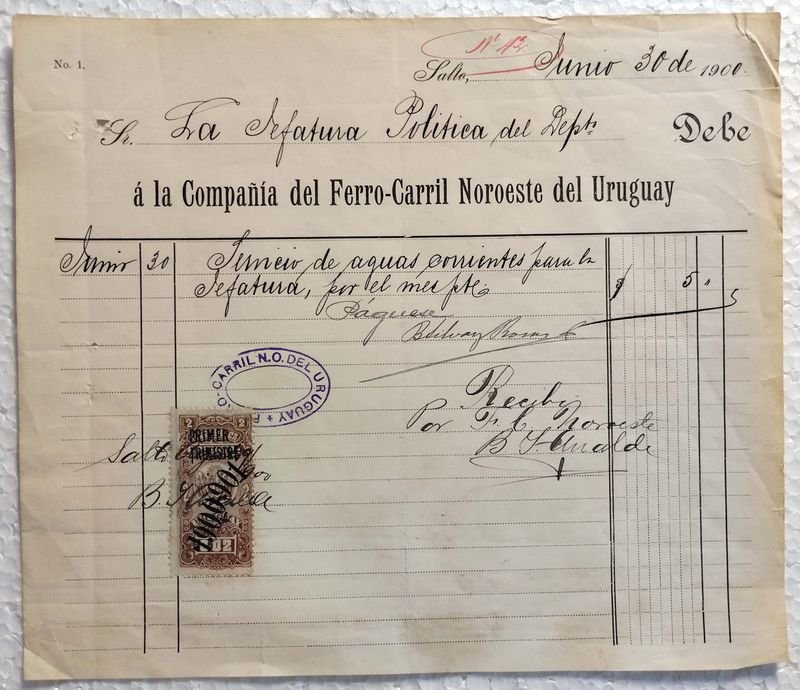 No. 1.
Nº 12.
Salto, Junio 30 de 1900.
Sr. La Jefatura Politica del Depto Debe
á la Compañía del Ferro-Carril Noroeste del Uruguay
Junio 30 Servicio de aguas corrientes para la
Jefatura, por el mes pte. $ 5
Páguese
CARRIL N.O. DEL URUGUAY
Recibí
Por F. C. Noroeste
2 2
PRIMER
TRIMESTRE
Salto
1900-901